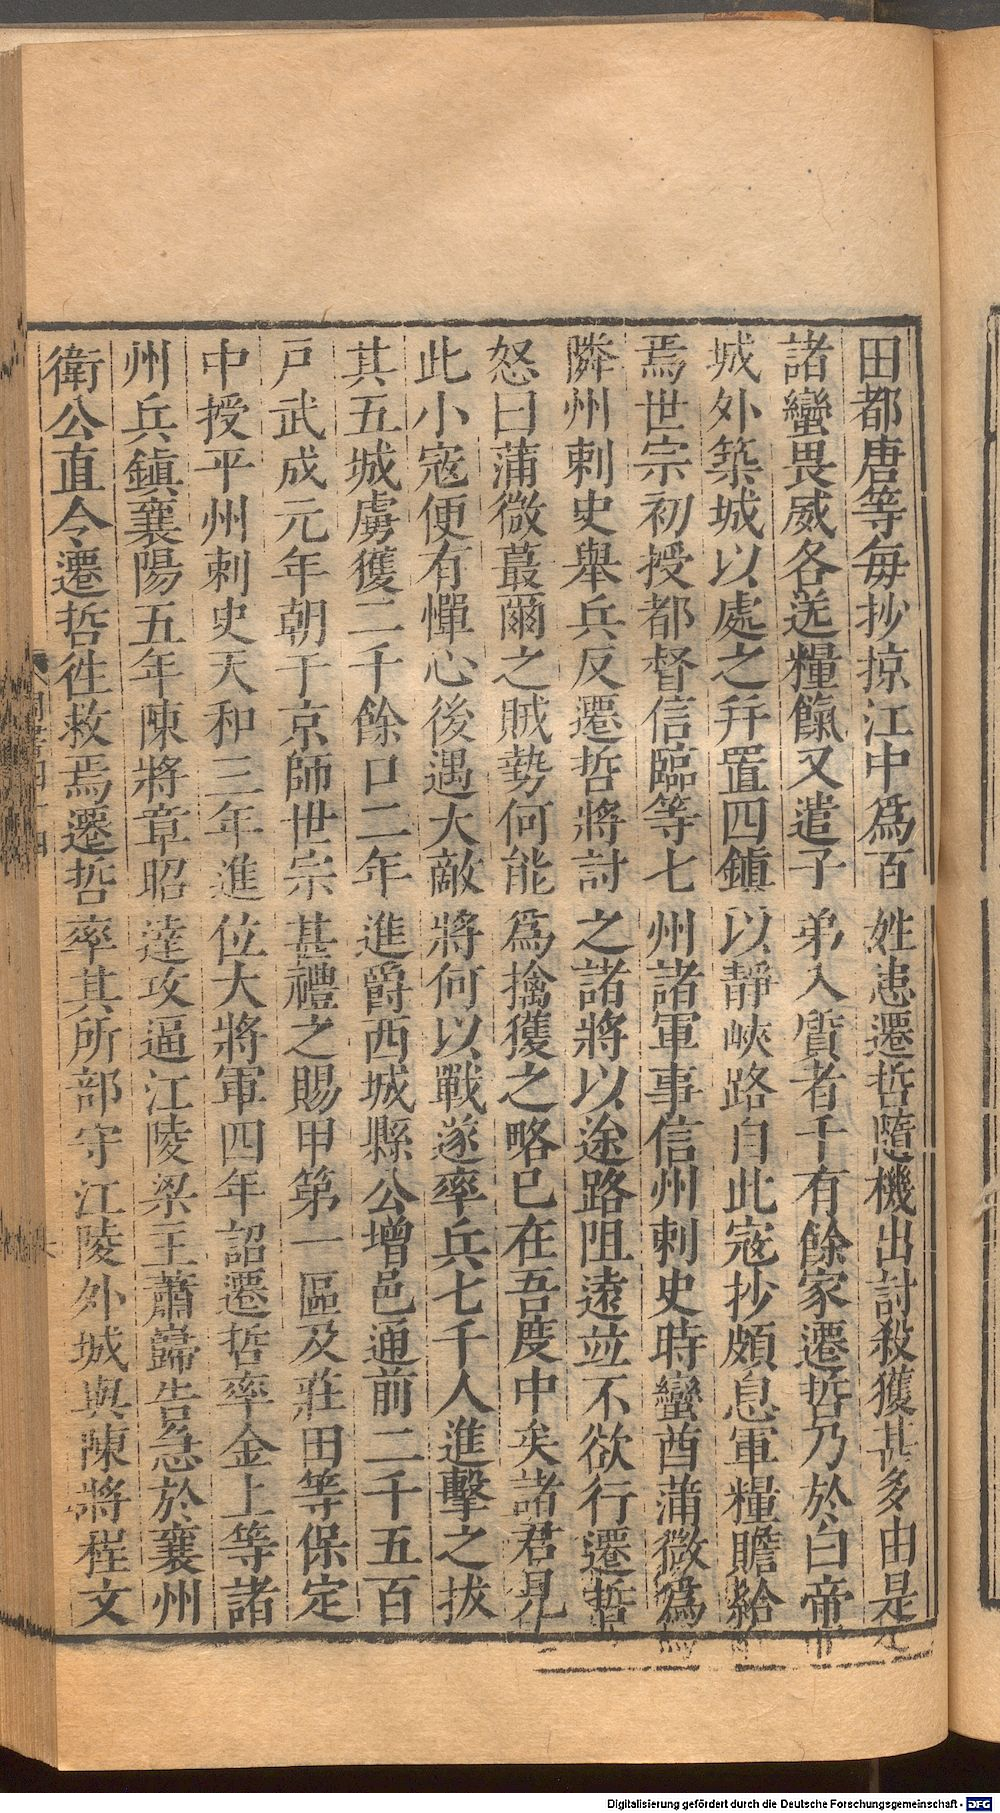 田都唐等毎抄掠江中爲百姓患遷哲隨機出討殺獲甚多由是
諸蠻畏威各送糧餼又遣子弟入質者千有餘家遷哲乃於白帝
城外築城以處之幷置四鎮以靜峽路自此寇抄頗息軍糧贍給
焉世宗初授都督信臨等七州諸軍事信州刺史時蠻酋蒲微爲
隣州刺史舉兵反遷哲將討之諸將以途路阻遠竝不欲行遷哲
怒曰蒲微蕞爾之賊勢何能爲擒獲之略已在吾度中矣諸君見
此小寇便有憚心後遇大敵將何以戰遂率兵七千人進擊之拔
其五城虜獲二千餘口二年進爵西城縣公增邑通前二千五百
戸武成元年朝于京師世宗甚禮之賜甲第一區及莊田等保定
中授平州刺史天和三年進位大將軍四年詔遷哲率金上等諸
州兵鎮襄陽五年陳將章昭達攻逼江陵梁王蕭巋告急於襄州
衛公直令遷哲徃救焉遷哲率其所部守江陵外城與陳將程文
Digitalisierung gefördert durch die Deutsche Forschungsgemeinschaft - DFG